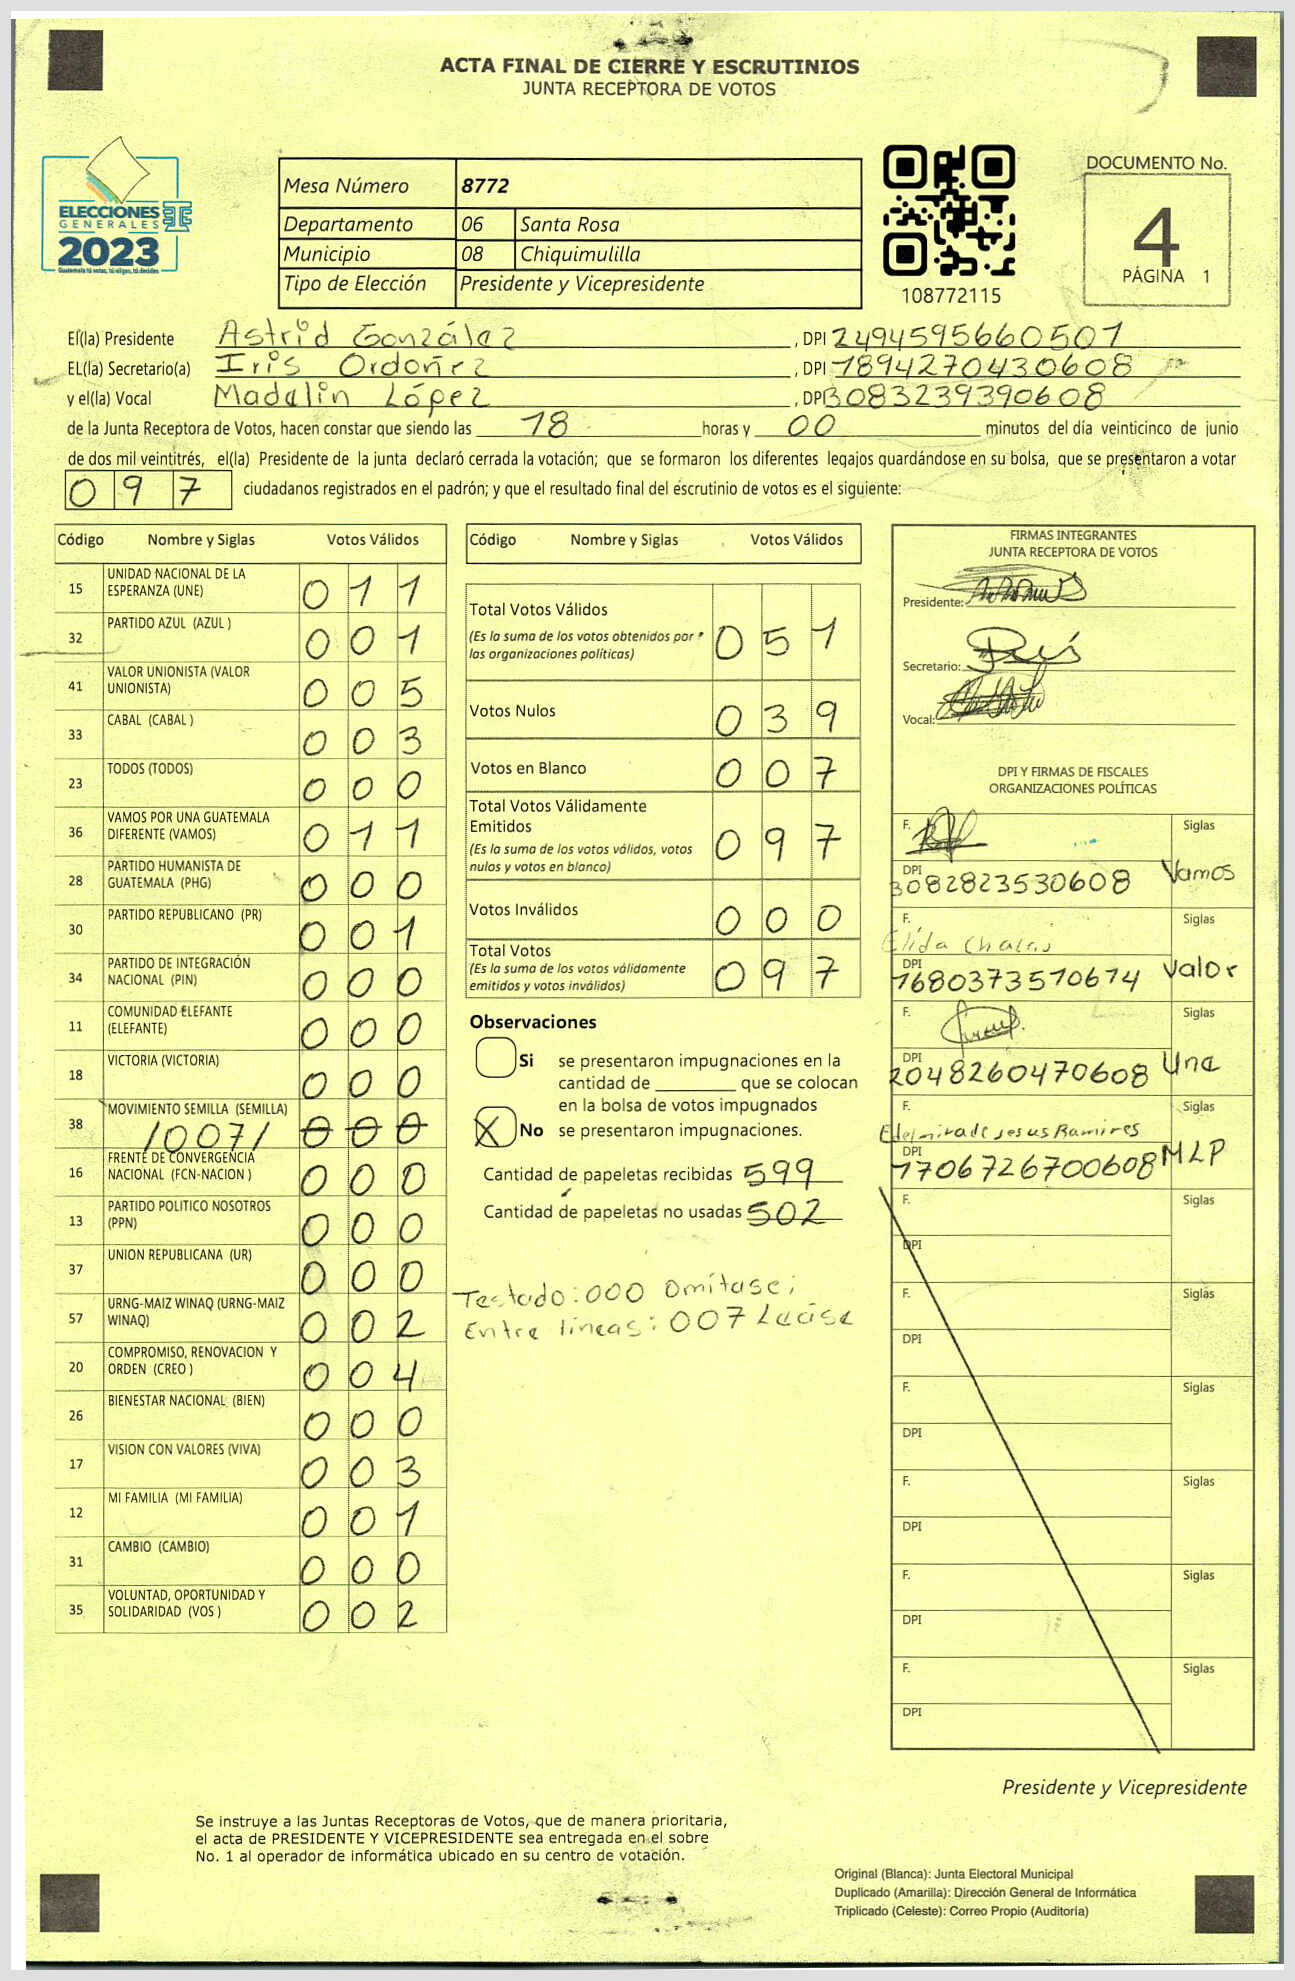 ACTA FINAL DE CIERRE Y ESCRUTINIOS
JUNTA RECEPTORA DE VOTOS
ELECCIONES
GENERALES
2023
Guatemala tú votas, tú eliges, tú decides
Mesa Número 8772
Departamento 06 Santa Rosa
Municipio 08 Chiquimulilla
Tipo de Elección Presidente y Vicepresidente
108772115
DOCUMENTO No.
4
PÁGINA 1
El(la) Presidente Astrid González , DPI 2494595660501
EL(la) Secretario(a) Iris Ordoñez , DPI 1894270430608
y el(la) Vocal Madalin López , DPI 3083239390608
de la Junta Receptora de Votos, hacen constar que siendo las 18 horas y 00 minutos del día veinticinco de junio
de dos mil veintitrés, el(la) Presidente de la junta declaró cerrada la votación; que se formaron los diferentes legajos quardándose en su bolsa, que se presentaron a votar
0 9 7 ciudadanos registrados en el padrón; y que el resultado final del escrutinio de votos es el siguiente:
Código Nombre y Siglas Votos Válidos
15 UNIDAD NACIONAL DE LA ESPERANZA (UNE) 0 1 1
32 PARTIDO AZUL (AZUL ) 0 0 1
41 VALOR UNIONISTA (VALOR UNIONISTA) 0 0 5
33 CABAL (CABAL ) 0 0 3
23 TODOS (TODOS) 0 0 0
36 VAMOS POR UNA GUATEMALA DIFERENTE (VAMOS) 0 1 1
28 PARTIDO HUMANISTA DE GUATEMALA (PHG) 0 0 0
30 PARTIDO REPUBLICANO (PR) 0 0 1
34 PARTIDO DE INTEGRACIÓN NACIONAL (PIN) 0 0 0
11 COMUNIDAD ELEFANTE (ELEFANTE) 0 0 0
18 VICTORIA (VICTORIA) 0 0 0
38 MOVIMIENTO SEMILLA (SEMILLA) /007/ 0 0 0
16 FRENTE DE CONVERGENCIA NACIONAL (FCN-NACION ) 0 0 0
13 PARTIDO POLITICO NOSOTROS (PPN) 0 0 0
37 UNION REPUBLICANA (UR) 0 0 0
57 URNG-MAIZ WINAQ (URNG-MAIZ WINAQ) 0 0 2
20 COMPROMISO, RENOVACION Y ORDEN (CREO ) 0 0 4
26 BIENESTAR NACIONAL (BIEN) 0 0 0
17 VISION CON VALORES (VIVA) 0 0 3
12 MI FAMILIA (MI FAMILIA) 0 0 1
31 CAMBIO (CAMBIO) 0 0 0
35 VOLUNTAD, OPORTUNIDAD Y SOLIDARIDAD (VOS ) 0 0 2
Código Nombre y Siglas Votos Válidos
Total Votos Válidos 0 5 1
(Es la suma de los votos obtenidos por
las organizaciones políticas)
Votos Nulos 0 3 9
Votos en Blanco 0 0 7
Total Votos Válidamente
Emitidos 0 9 7
(Es la suma de los votos válidos, votos
nulos y votos en blanco)
Votos Inválidos 0 0 0
Total Votos 0 9 7
(Es la suma de los votos válidamente
emitidos y votos inválidos)
Observaciones
Si se presentaron impugnaciones en la
cantidad de ________ que se colocan
en la bolsa de votos impugnados
X No se presentaron impugnaciones.
Cantidad de papeletas recibidas 599
Cantidad de papeletas no usadas 502
Testado: 000 Omítase;
Entre líneas: 007 Léase
FIRMAS INTEGRANTES
JUNTA RECEPTORA DE VOTOS
Presidente:
Secretario:
Vocal:
DPI Y FIRMAS DE FISCALES
ORGANIZACIONES POLÍTICAS
F. Siglas
DPI 3082823530608 Vamos
F. Siglas
Elida
DPI 1680373510614 Valor
F. Siglas
DPI 2048260470608 Une
F. Siglas
Edelmira de Jesus Ramires
DPI 1706726700608 MLP
F. Siglas
DPI
F. Siglas
DPI
F. Siglas
DPI
F. Siglas
DPI
F. Siglas
DPI
F. Siglas
DPI
Presidente y Vicepresidente
Se instruye a las Juntas Receptoras de Votos, que de manera prioritaria,
el acta de PRESIDENTE Y VICEPRESIDENTE sea entregada en el sobre
No. 1 al operador de informática ubicado en su centro de votación.
Original (Blanca): Junta Electoral Municipal
Duplicado (Amarilla): Dirección General de Informática
Triplicado (Celeste): Correo Propio (Auditoría)